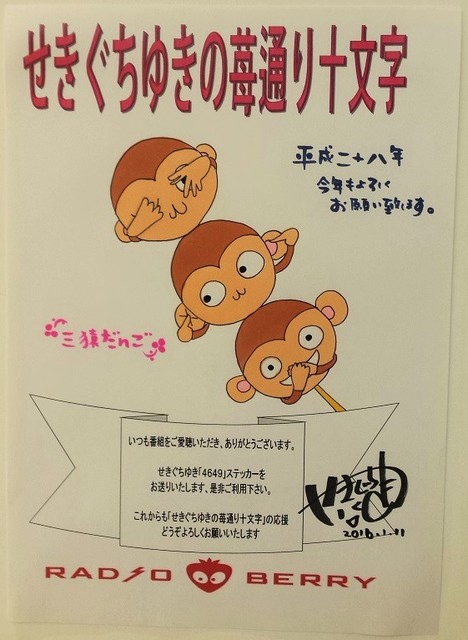 せきぐちゆきの苺通り十文字
平成二十八年
今年もよろしく
お願い致します。
三猿だんご
いつも番組をご愛聴いただき、ありがとうございます。
せきぐちゆき「4649」ステッカーを
お送りいたします、是非ご利用下さい。
これからも「せきぐちゆきの苺通り十文字」の応援
どうぞよろしくお願いいたします
2016.1.11
RADIO BERRY